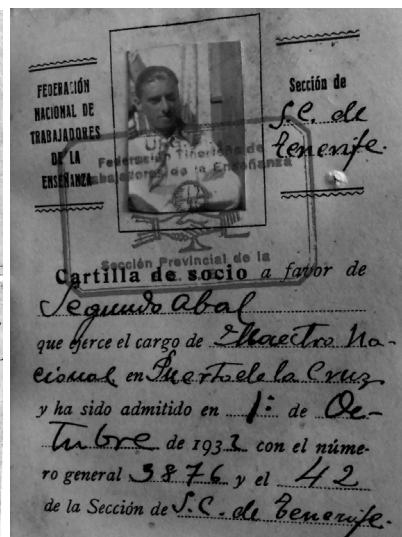 FEDERACIÓN
NACIONAL DE
TRABAJADORES
DE LA
ENSEÑANZA
Sección de
S.C. de
Tenerife.
U.G.T.
Federación Tinerfeña de
Trabajadores de la Enseñanza
Sección Provincial de la
Cartilla de socio a favor de
Segundo Abal
que ejerce el cargo de Maestro Na-
cional en Puerto de la Cruz
y ha sido admitido en 1º de Oc-
tubre de 1932 con el núme-
ro general 3876 y el 42
de la Sección de S.C. de Tenerife.